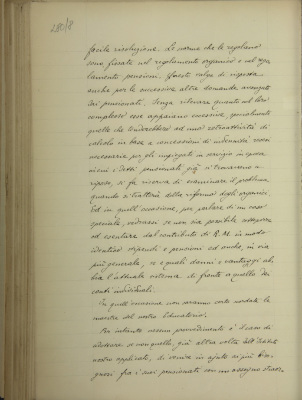 280/8
facile risoluzione. Le norme che le regolano
sono fissate nel regolamento organico e nel rego-
lamento pensioni. Questo valga di risposta
anche per le successive altre domande avanzate
dai pensionati. Senza rilevare quanto nel loro
complesso esse appaiano eccessive, specialmente
quelle che tenderebbero ad una retroattività di
calcolo in base a concessioni di indennità
necessarie per gli impiegati in servizio in epoca
in cui i detti pensionati già si trovavano a
riposo, si fa riserva di esaminare il problema
quando si tratterà della riforma degli organici.
Ed in quell'occasione, per parlare di un caso
speciale, vedrassi se non sia possibile adoperarsi
ad esentare dal contributo di R. M. in modo
identico stipendi e pensioni ed anche, in via
più generale, se e quali danni e vantaggi ab-
bia l'attuale sistema di fronte a quello dei
conti individuali.
In quell'occasione non saranno certo
del nostro
Per intanto nessun provvedimento è il caso di
adottare se non quello, già altre volte dall'Istituto
nostro applicato, di venire in aiuto ai più biso-
gnosi fra i suoi pensionati con un assegno straor-